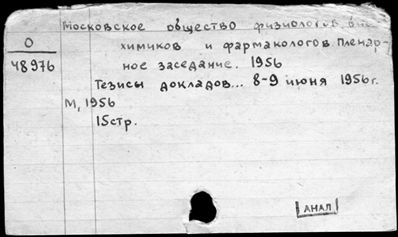 Московское общество физиологов, био
О
химиков и фармакологов. Пленар-
48976
ное заседание. 1956
Тезисы докладов... 8-9 июня 1956г.
М, 1956
15стр.
АНАЛ